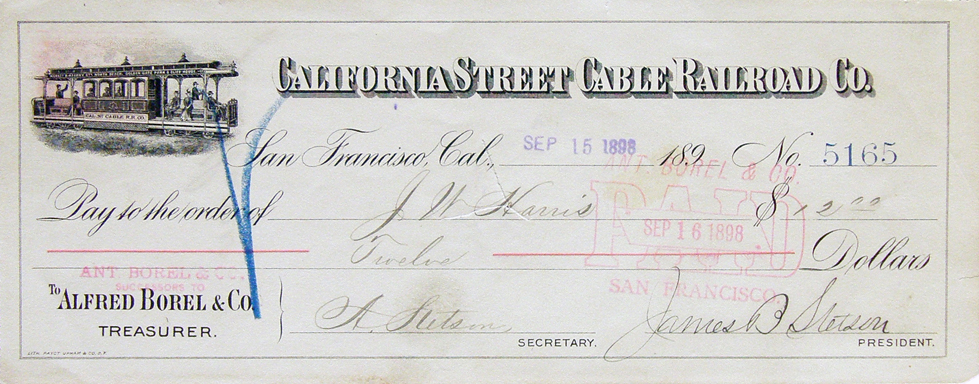 CALIFORNIA STREET CABLE RAILROAD CO.
CAL. ST. CABLE R.R. CO.
San Francisco, Cal., SEP 15 1898 189 No. 5165
Pay to the order of J W Harris $ 12 00
Twelve Dollars
ANT. BOREL & CO.
PAID
SEP 16 1898
SAN FRANCISCO
ANT. BOREL & CO.
SUCCESSORS TO
To ALFRED BOREL & CO.
TREASURER.
A. Stetson
SECRETARY.
James B Stetson
PRESIDENT.